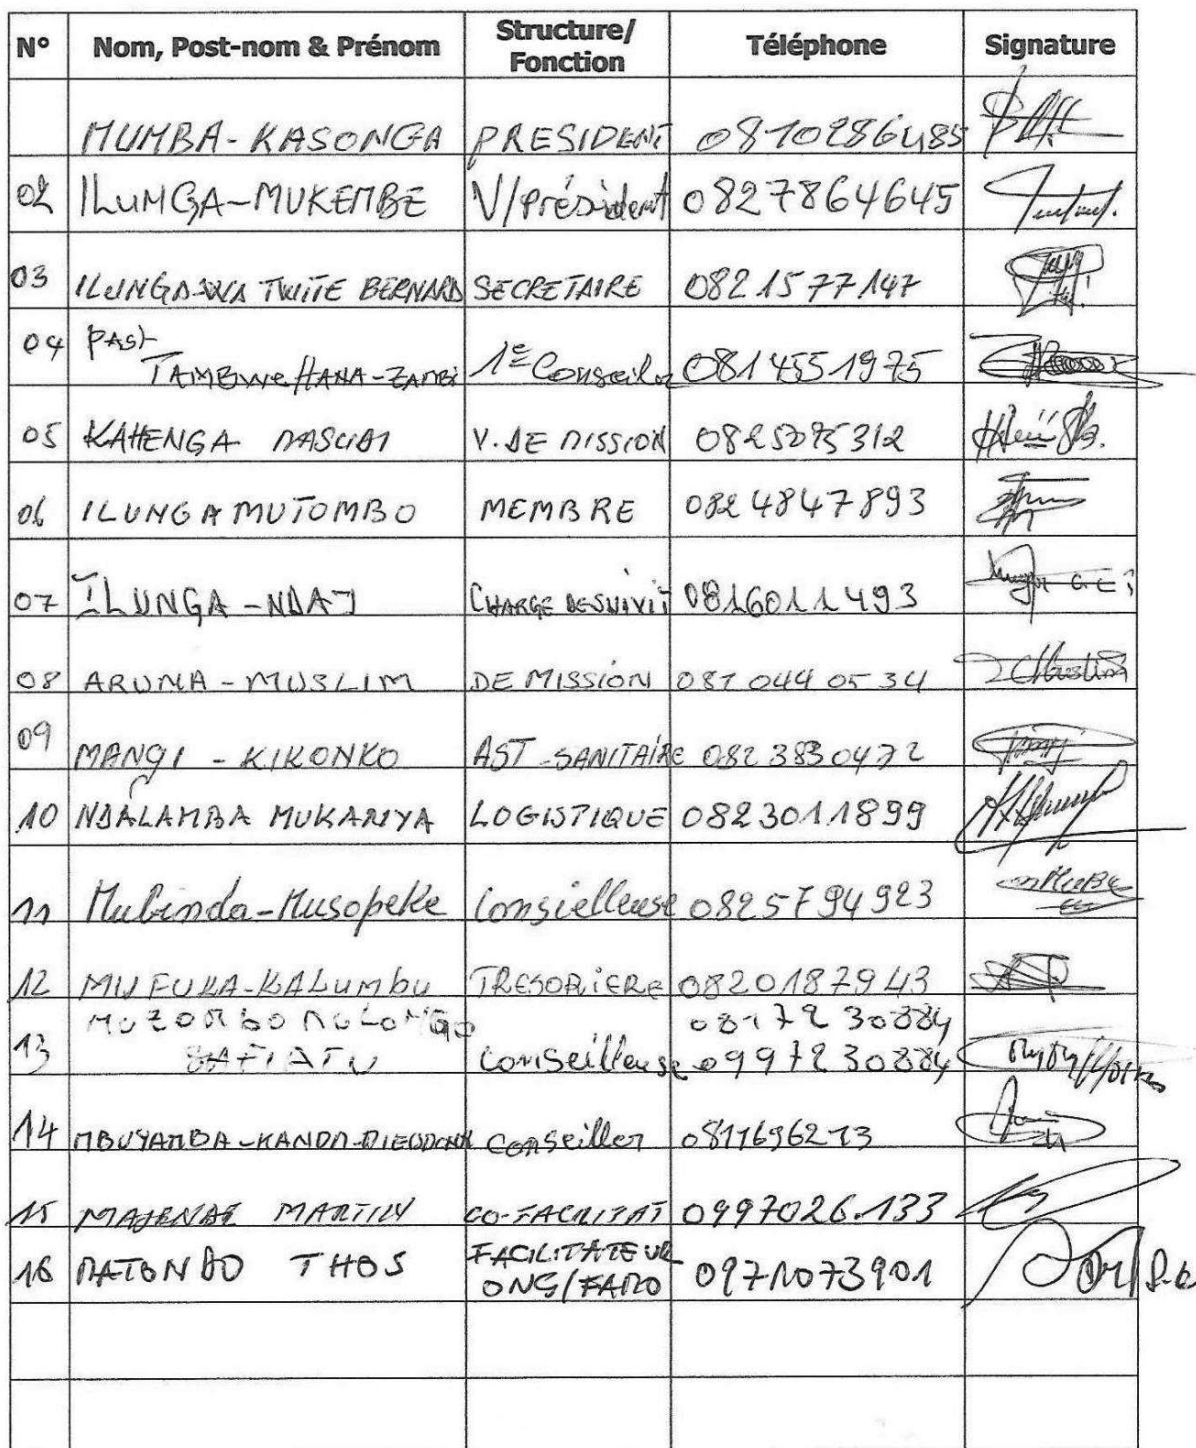 N° Nom, Post-nom & Prénom Structure/ Fonction Téléphone Signature
MUMBA-KASONGA PRESIDENT 0810286485
02 ILUNGA-MUKEMBE V/Président 0827864645
03 ILUNGA-WA TWITE BERNARD SECRETAIRE 0821577147
04 PAST TAMBWE HANA-ZAMBI 1e Conseiler 0814551975
05 KAHENGA V. DE MISSION 0825095312
06 ILUNGA MUTOMBO MEMBRE 0824847893
07 ILUNGA-NDAJ CHARGE DE SUIVIT 0816011493
08 ARUNA-MUSLIM DE MISSION 081 044 05 34
09 MANGI - KIKONKO AST-SANITAIRE 082 3830472
10 NDALAMBA MUKANYA LOGISTIQUE 0823011899
11 Mubinda-Musopeke Consielleuse 0825794923
12 MUFUKA-KALUMBU TRESORIERE 0820187943
0817230884
13 SAFIATU Conseilleuse 0997230884
14 MBUYAMBA-KANDA-DIEUDONNE Conseiller 0811696213
15 MARTILY CO-FACILITAT 0997026.133
16 MATONDO THOS FACILITATEUR ONG/FARO 0971073901